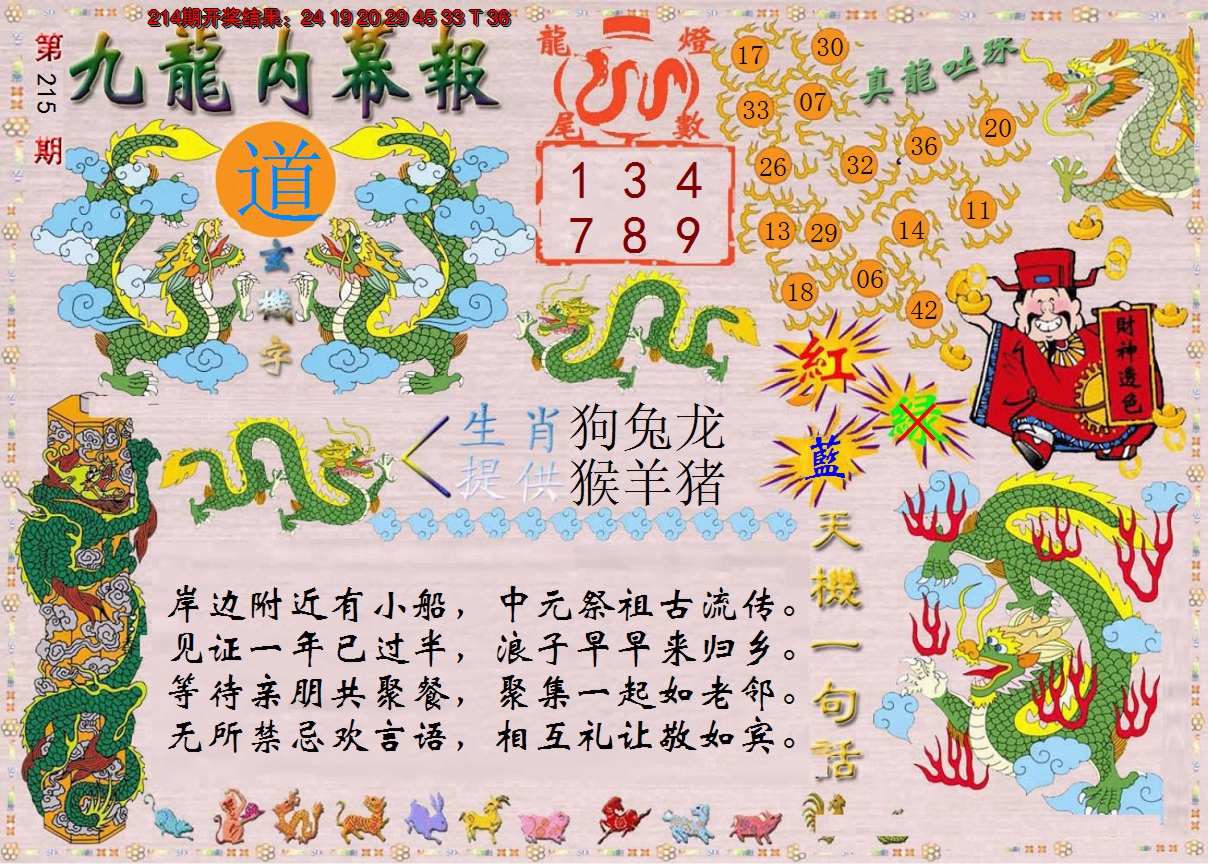 214期开奖结果：24 19 20 29 45 33 T 36
第215期
九龍内幕報
道
玄機字
龍燈尾數
1 3 4
7 8 9
真龍吐珠
17 30
33 07
36 20
26 32
11
13 29 14
18 06
42
紅
绿
藍
財神透色
生肖提供
狗兔龙
猴羊猪
天機一句話
岸边附近有小船，中元祭祖古流传。
见证一年已过半，浪子早早来归乡。
等待亲朋共聚餐，聚集一起如老邻。
无所禁忌欢言语，相互礼让敬如宾。